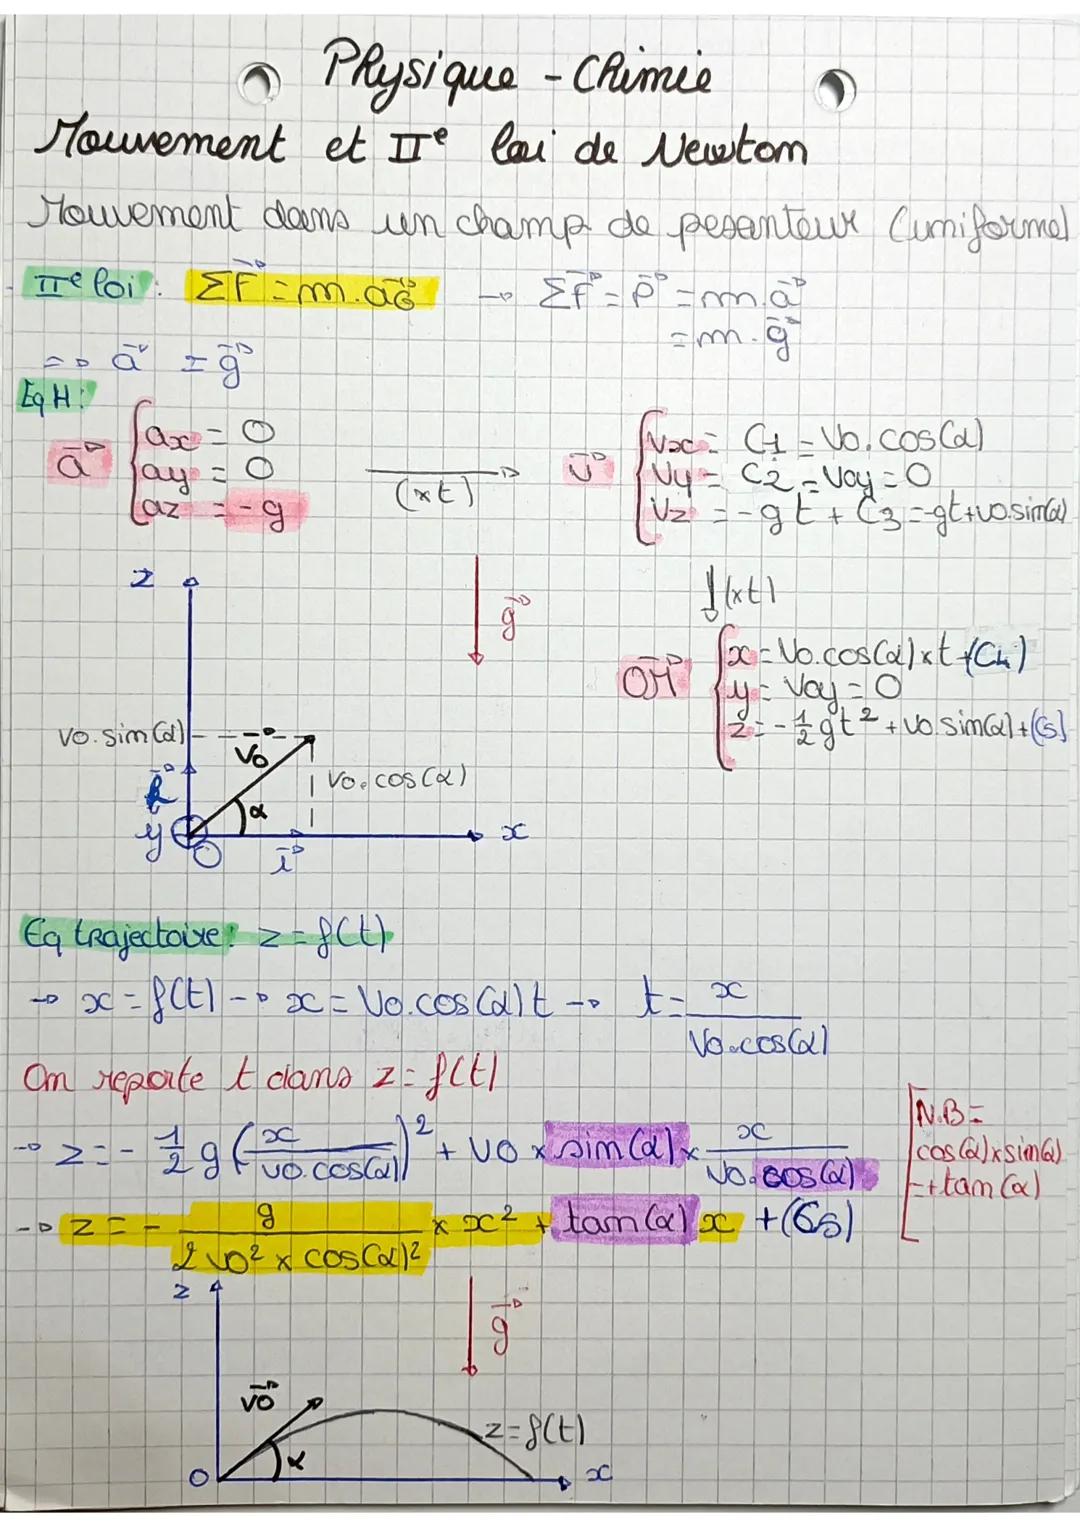 Physique - Chimie
Mouvement et IIe loi de Newton
Mouvement dans un champ de pesanteur (uniforme)
IIe loi : ΣF⃗ = m.a⃗G → ΣF⃗ = P⃗ = m.a⃗
= m.g⃗
=> a⃗ = g⃗
Eq H :
a⃗ { ax = 0
ay = 0
az = -g
(xt)
v⃗ { Vx = C1 = V0.cos(α)
Vy = C2 = V0y = 0
Vz = -gt + C3 = -gt+v0.sin(α)
↓(xt)
OM⃗ { x = V0.cos(α)xt+(C4)
y = V0y = 0
z = -1/2 gt² + V0.sin(α)+(C5)
z
g⃗
V0.sin(α)
V0⃗
V0.cos(α)
k⃗
α
y
O
i⃗
x
Eq trajectoire : z = f(t)
→ x = f(t) → x = V0.cos(α)t → t = x/V0.cos(α)
On reporte t dans z = f(t)
→ z = - 1/2 g (x/V0.cos(α))² + V0 x sin(α) x x/V0.cos(α)
N.B =
cos(α)xsin(α)
=+tan(α)
→ z = - g/2 V0² x cos(α)² x x² + tan(α) x + (C5)
z
g⃗
V0⃗
z = f(t)
α
O
x